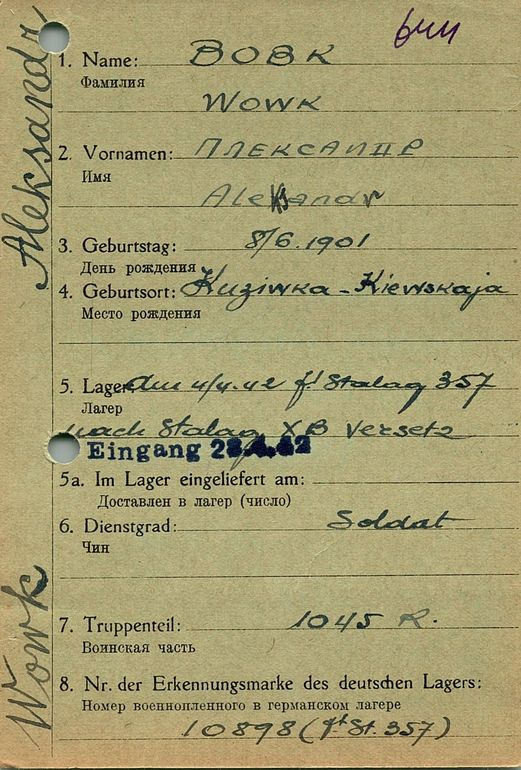 644
1. Name: ВОВК
Фамилия
Wowk
2. Vornamen: АЛЕКСАНДР
Имя
Aleksandr
3. Geburtstag: 8/6. 1901
День рождения
4. Geburtsort: Kuziwka - Kiewskaja
Место рождения
5. Lager: am 4/4.42 f. Stalag 357
Лагер
nach Stalag XB versetz
Eingang 28.4.42
5a. Im Lager eingeliefert am:
Доставлен в лагер (число)
6. Dienstgrad: Soldat
Чин
7. Truppenteil: 1045 R.
Воинская часть
8. Nr. der Erkennungsmarke des deutschen Lagers:
Номер военнопленного в германском лагере
10898 (St. 357)
Wowk Aleksandr